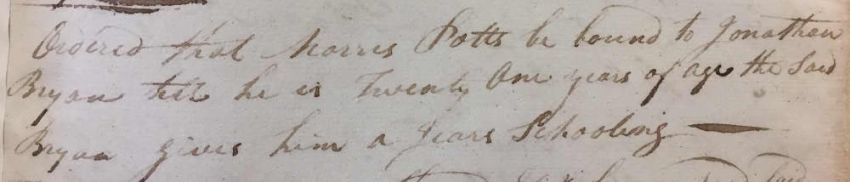 Ordered that Morris Potts be bound to Jonathan
Bryan till he is Twenty One years of age the Said
Bryan gives him a years Schooling —
Said